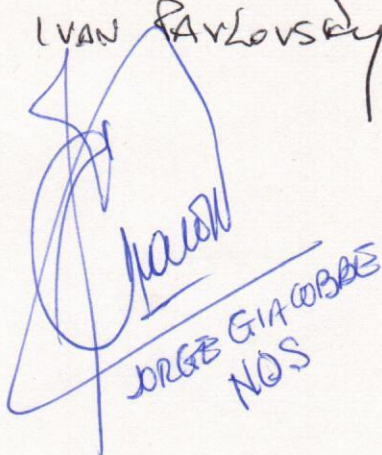 IVAN PAVLOVSKY
JORGE GIACOBBE
NOS